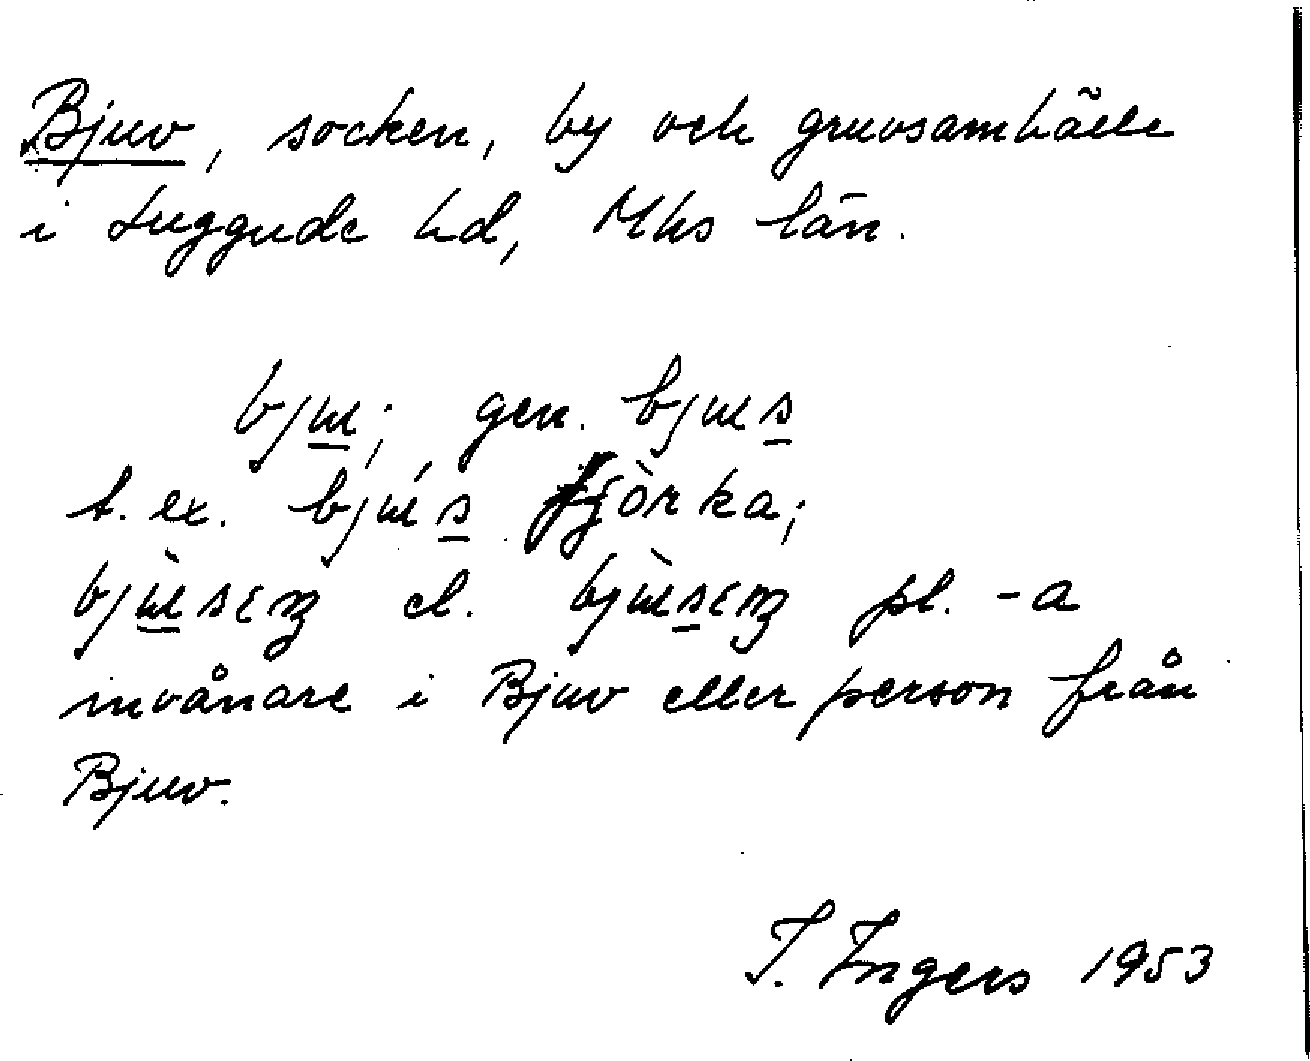 Bjuv, socken, by och gruvsamhälle
i Luggude hd, Mhs län.
bjɯ; gen. bjɯs
t. ex. bjɯ́s
invånare i Bjuv eller person från
Bjuv.
I. Ingers 1953